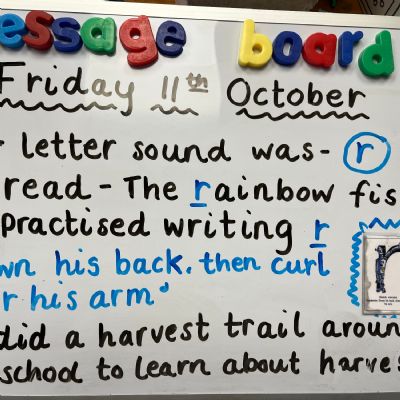 essage board
Friday 11th October
letter sound was- r
read - The rainbow fis
Practised writing r
wn his back, then curl
r his arm"
did a harvest trail aroun
school to learn about harves